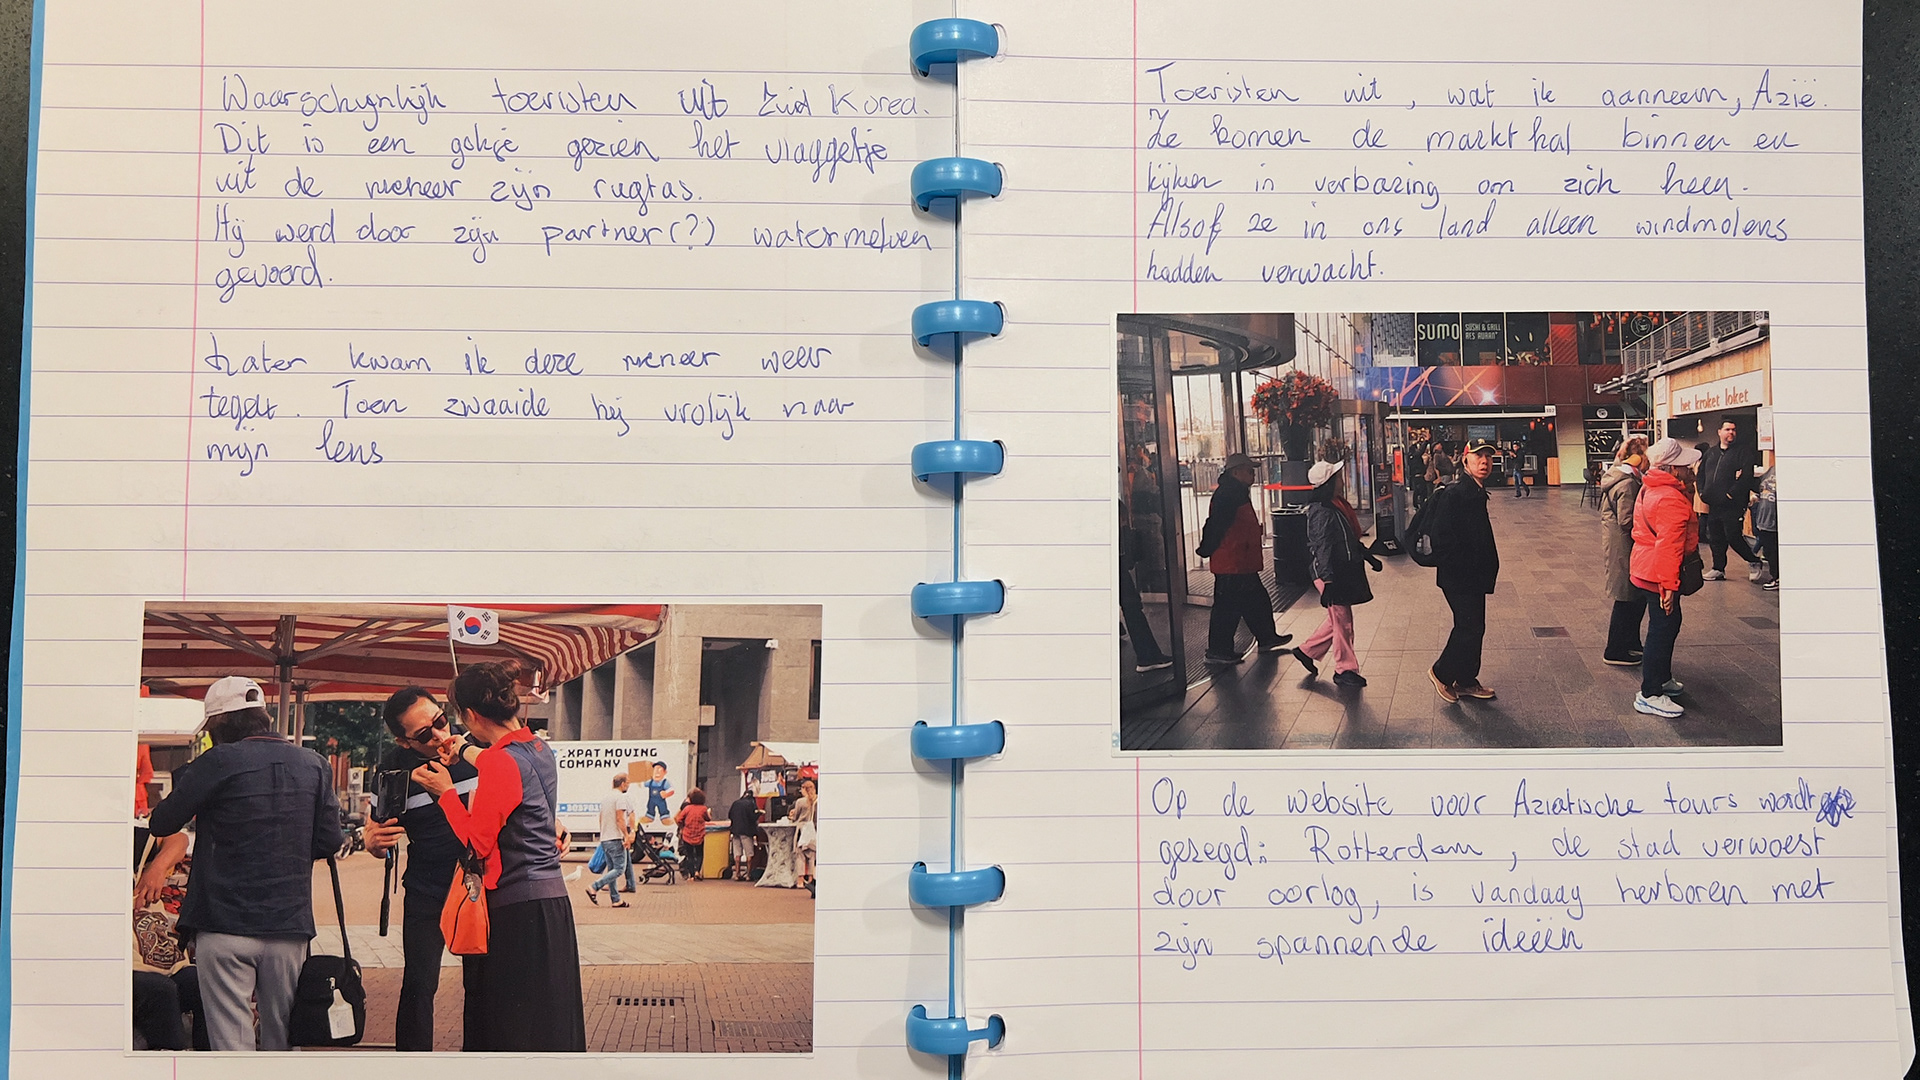 Waarschynlijk toeristen uit Zuid Korea.
Dit is een gokje gezien het vlaggetje
uit de meneer zijn rugtas.
Hij werd door zijn partner(?) watermeloen
gevoerd.
Later kwam ik deze meneer weer
tegen. Toen zwaaide hij vrolijk naar
mijn lens
XPAT MOVING
COMPANY
Toeristen uit, wat ik aanneem, Azië.
Ze komen de markthal binnen en
kijken in verbazing om zich heen.
Alsof ze in ons land alleen windmolens
hadden verwacht.
SUMO
SUSHI & GRILL
het kroket loket
Op de website voor Aziatische tours wordt
gezegd: Rotterdam, de stad verwoest
door oorlog, is vandaag herboren met
zijn spannende ideeën